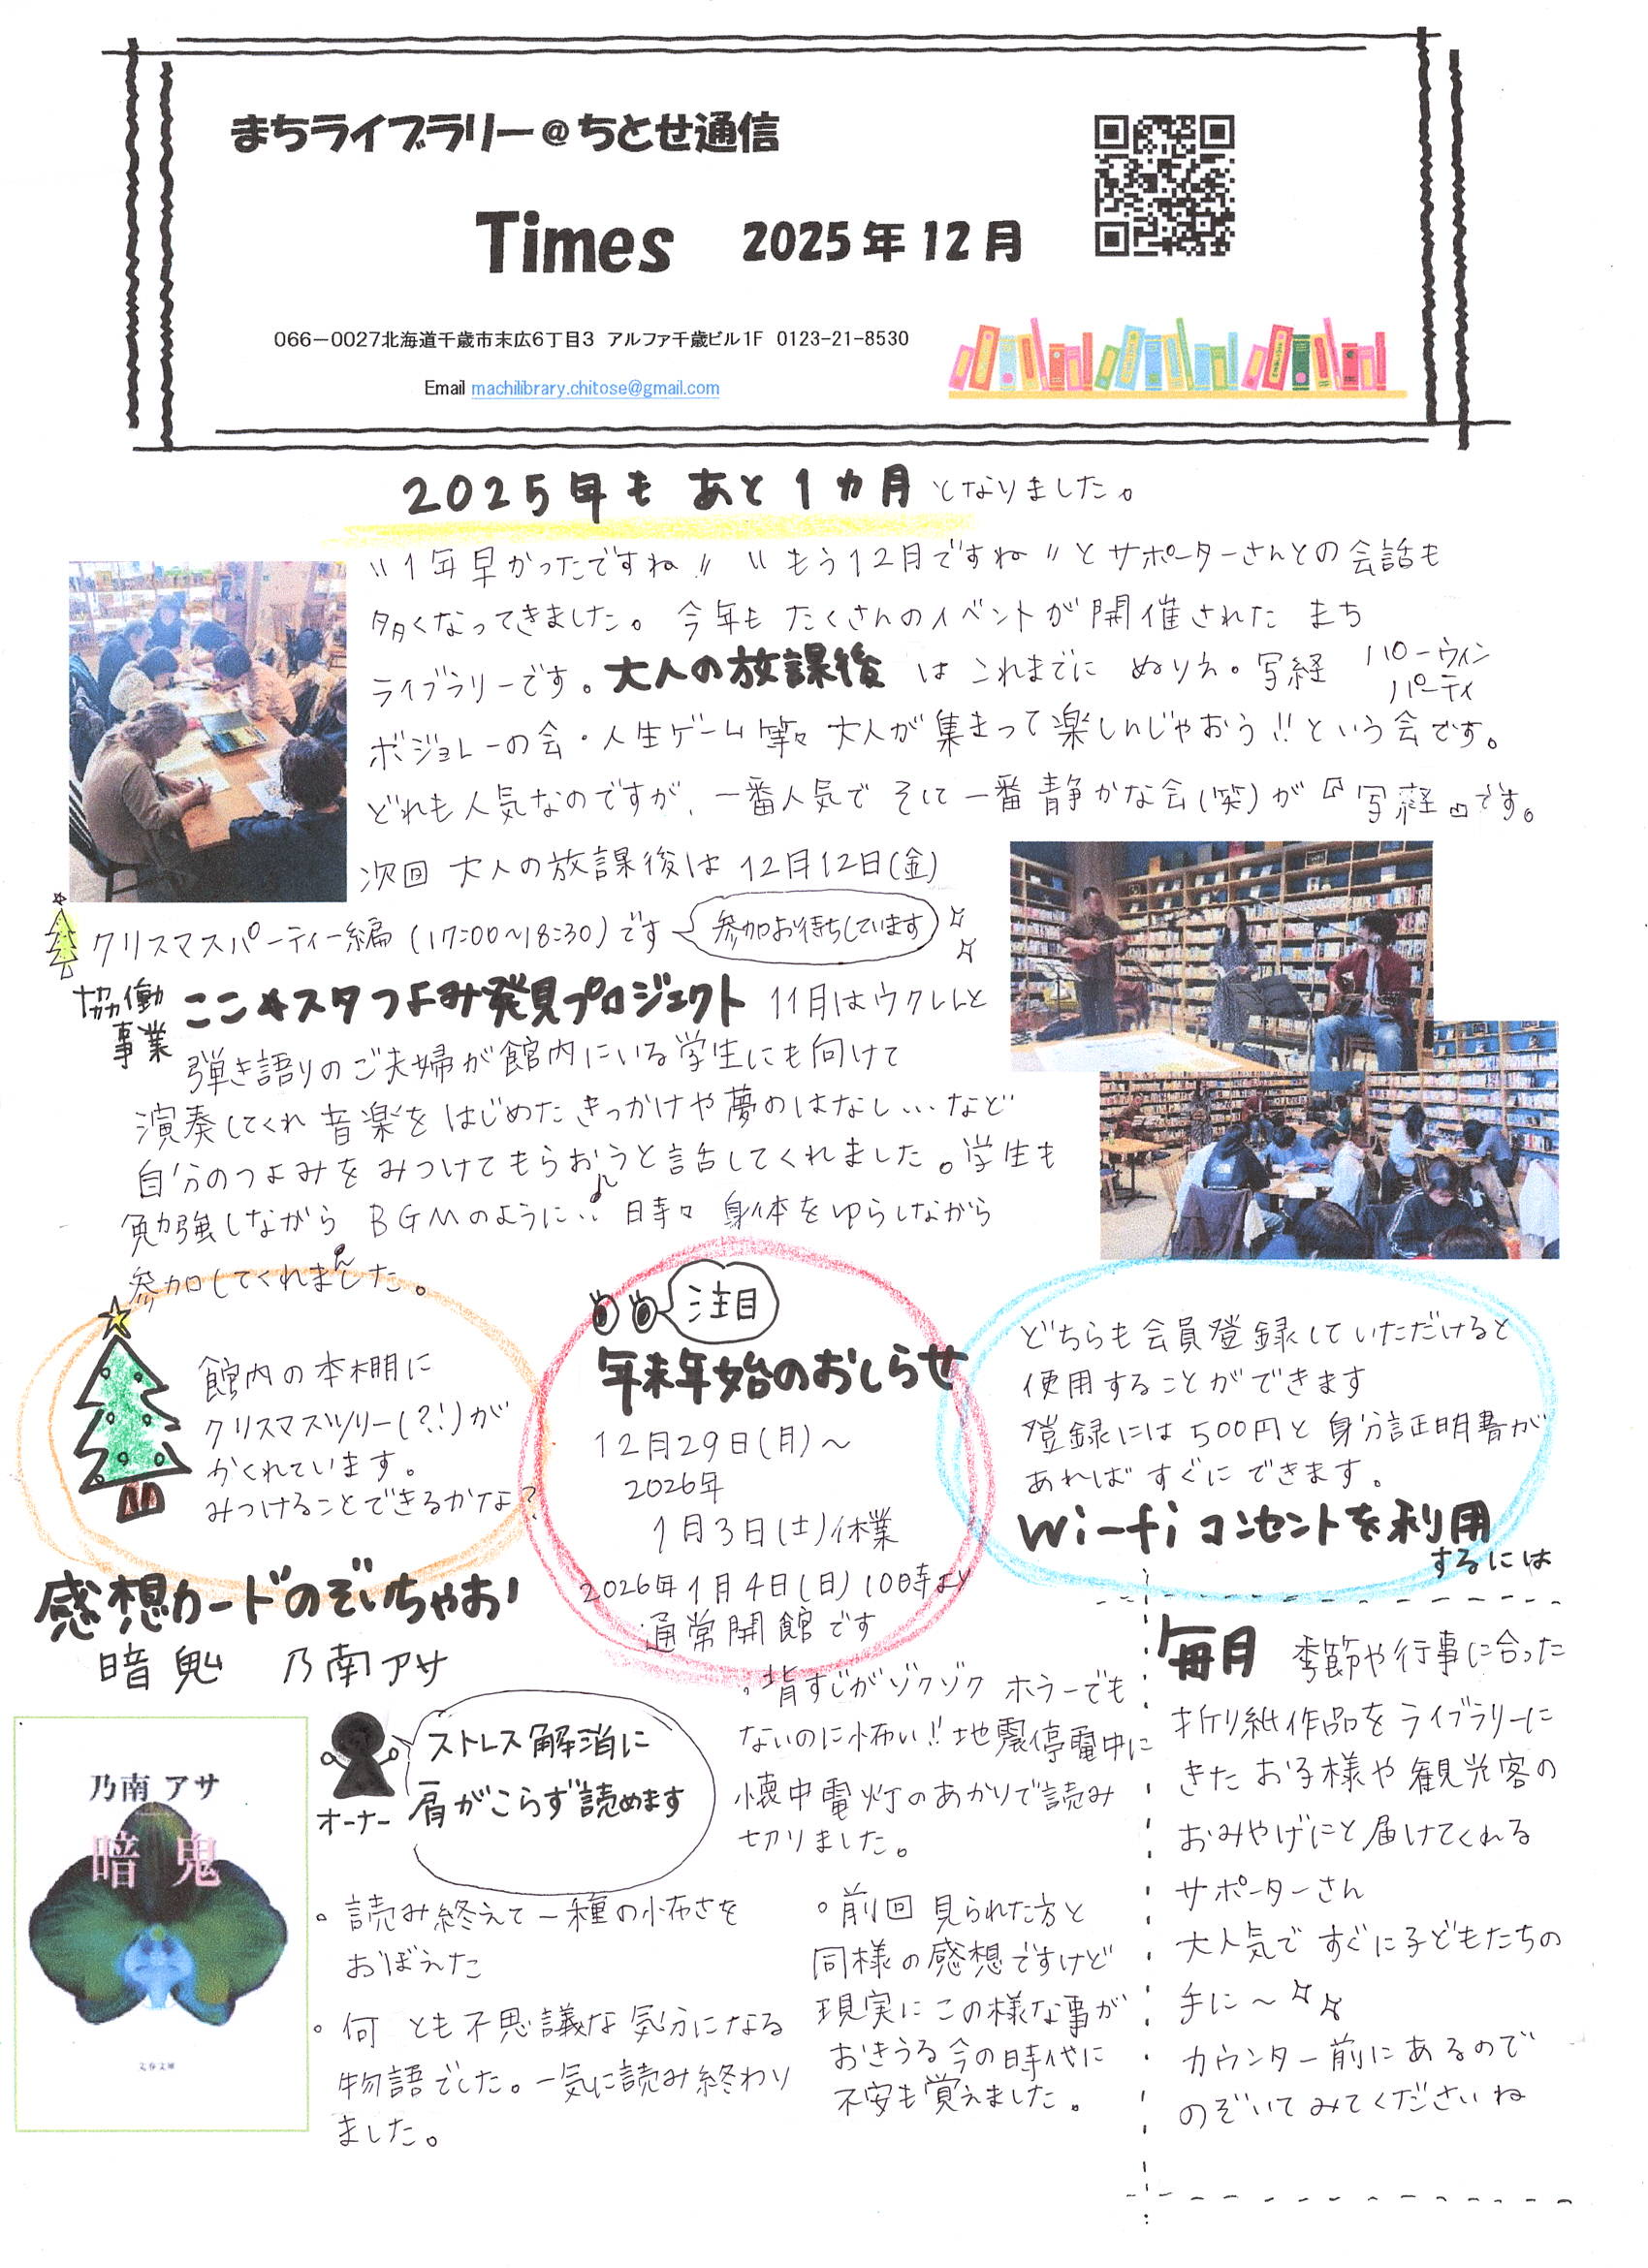 まちライブラリー@ちとせ通信
Times 2025年12月
066-0027北海道千歳市末広6丁目3 アルファ千歳ビル1F 0123-21-8530
Email machilibrary.chitose@gmail.com
2025年もあと1カ月となりました。
"1年早かったですね" "もう12月ですね"とサポーターさんとの会話も
多くなってきました。今年もたくさんのイベントが開催されたまち
ライブラリーです。大人の放課後はこれまでにぬりえ。写経 ハローウィンパーティ
ボジョレーの会・人生ゲーム等々大人が集まって楽しんじゃおう!!という会です。
どれも人気なのですが、一番人気でそして一番静かな会(笑)が『写経』です。
次回 大人の放課後は12月12日(金)
クリスマスパーティー編(17:00~18:30)です 参加お待ちしています
協働事業 ここ★スタつよみ発見プロジェクト 11月はウクレレと
弾き語りのご夫婦が館内にいる学生にも向けて
演奏してくれ音楽をはじめたきっかけや夢のはなし…など
自分のつよみをみつけてもらおうと話してくれました。学生も
勉強しながらBGMのように…時々身体をゆらしながら
参加してくれました。
館内の本棚に
クリスマスツリー(?!)が
かくれています。
みつけることできるかな?
注目
年末年始のおしらせ
12月29日(月)~
2026年
1月3日(土)休業
2026年1月4日(日)10時より
通常開館です
どちらも会員登録していただけると
使用することができます
登録には500円と身分証明書が
あればすぐにできます。
Wi-fiコンセントを利用
するには
感想カードのぞいちゃお!
暗鬼 乃南アサ
乃南アサ
暗鬼
文春文庫
オーナー
ストレス解消に
肩がこらず読めます
。読み終えて一種の怖さを
おぼえた
。何とも不思議な気分になる
物語でした。一気に読み終わり
ました。
。背すじがゾクゾク ホラーでも
ないのに怖い!!地震停電中に
懐中電灯のあかりで読み
切りました。
。前回見られた方と
同様の感想ですけど
現実にこの様な事が
おきうる今の時代に
不安も覚えました。
毎月 季節や行事に合った
折り紙作品をライブラリーに
きたお子様や観光客の
おみやげにと届けてくれる
サポーターさん
大人気ですぐに子どもたちの
手に~
カウンター前にあるので
のぞいてみてくださいね